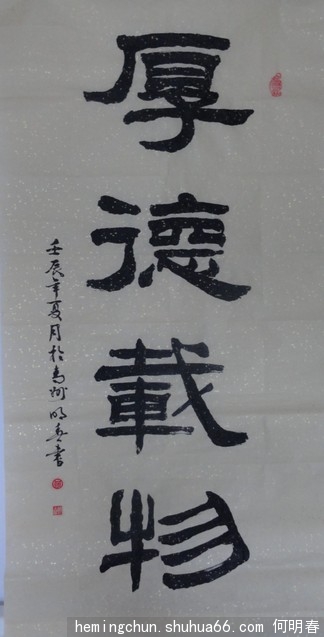 厚德載物
壬辰年夏月於高河明春書
hemingchun.shuhua66.com 何明春